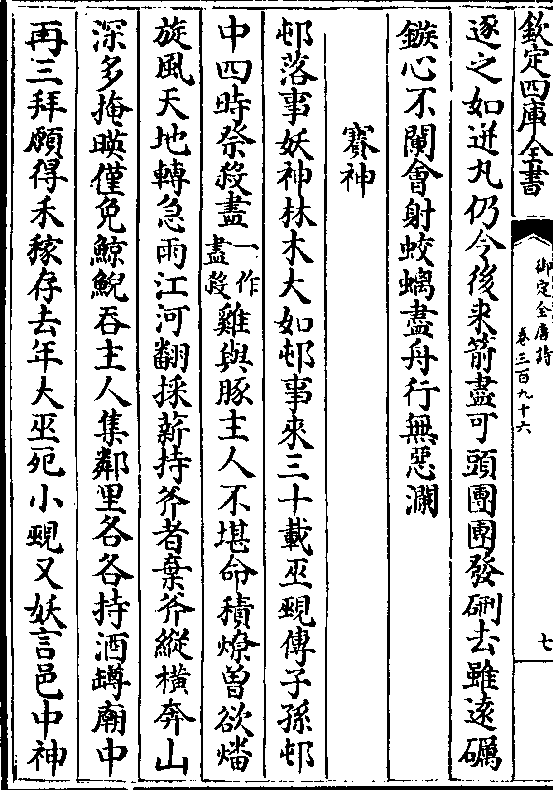 欽定四庫全書
御定全唐詩
卷三百九十六
七
逐之如迸丸仍令後來箭盡可頭團團發硎去雖遠礪
鏃心不闌會射蛟螭盡舟行無惡瀾
賽神
邨落事妖神林木大如邨事來三十載巫覡傳子孫邨
中四時祭殺盡
一作
盡殺
雞與豚主人不堪命積燎曾欲燔
旋風天地轉急雨江河翻採薪持斧者棄斧縱橫奔山
深多掩映僅免鯨鯢吞主人集鄰里各各持酒罇廟中
再三拜願得禾稼存去年大巫死小覡又妖言邑中神